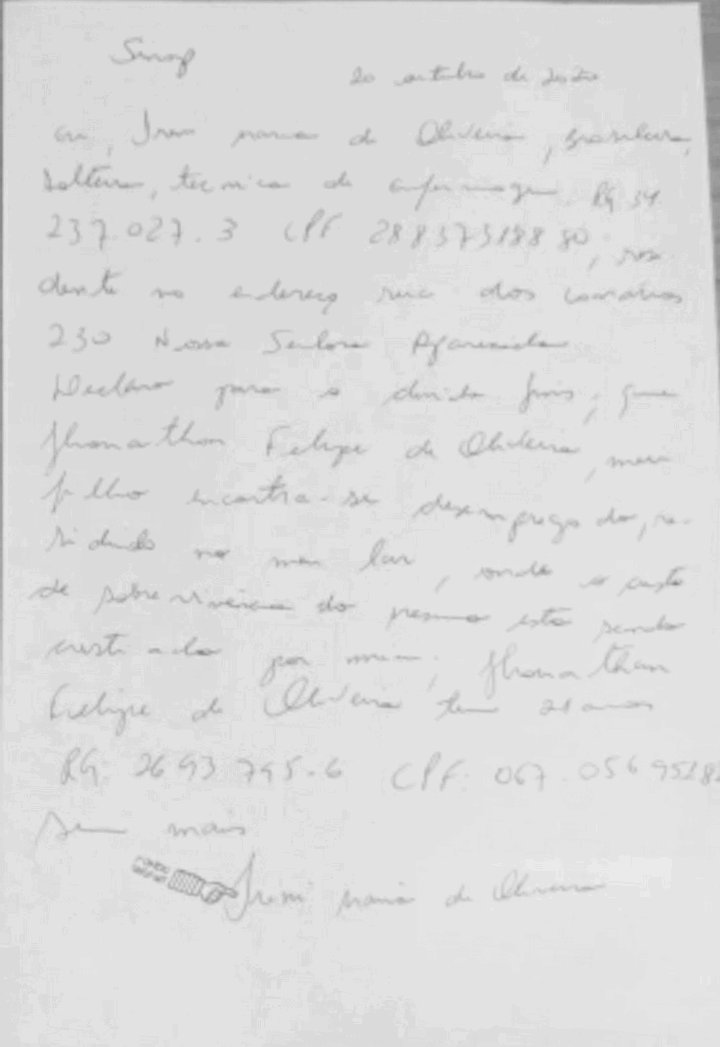 Sinop
20 outubro de 2020
eu, Ireni maria de Oliveira, brasileira,
solteira, tecnica de enfermagem RG 34
237.027.3 CPF 28837518880, resi
dente no endereço rua dos canarios
230 Nossa Senhora Aparecida
Declaro para o devido fins, que
Jhonathan Felipe de Oliveira, meu
filho encontra-se desempregado, re-
sidindo no meu lar, onde o custo
de sobrevivencia do mesmo esta sendo
custiado por mim; Jhonathan
Felipe de Oliveira tem 21 anos
RG. 2693795-6 CPF: 067.056
Sem mais
Ireni maria de Oliveira